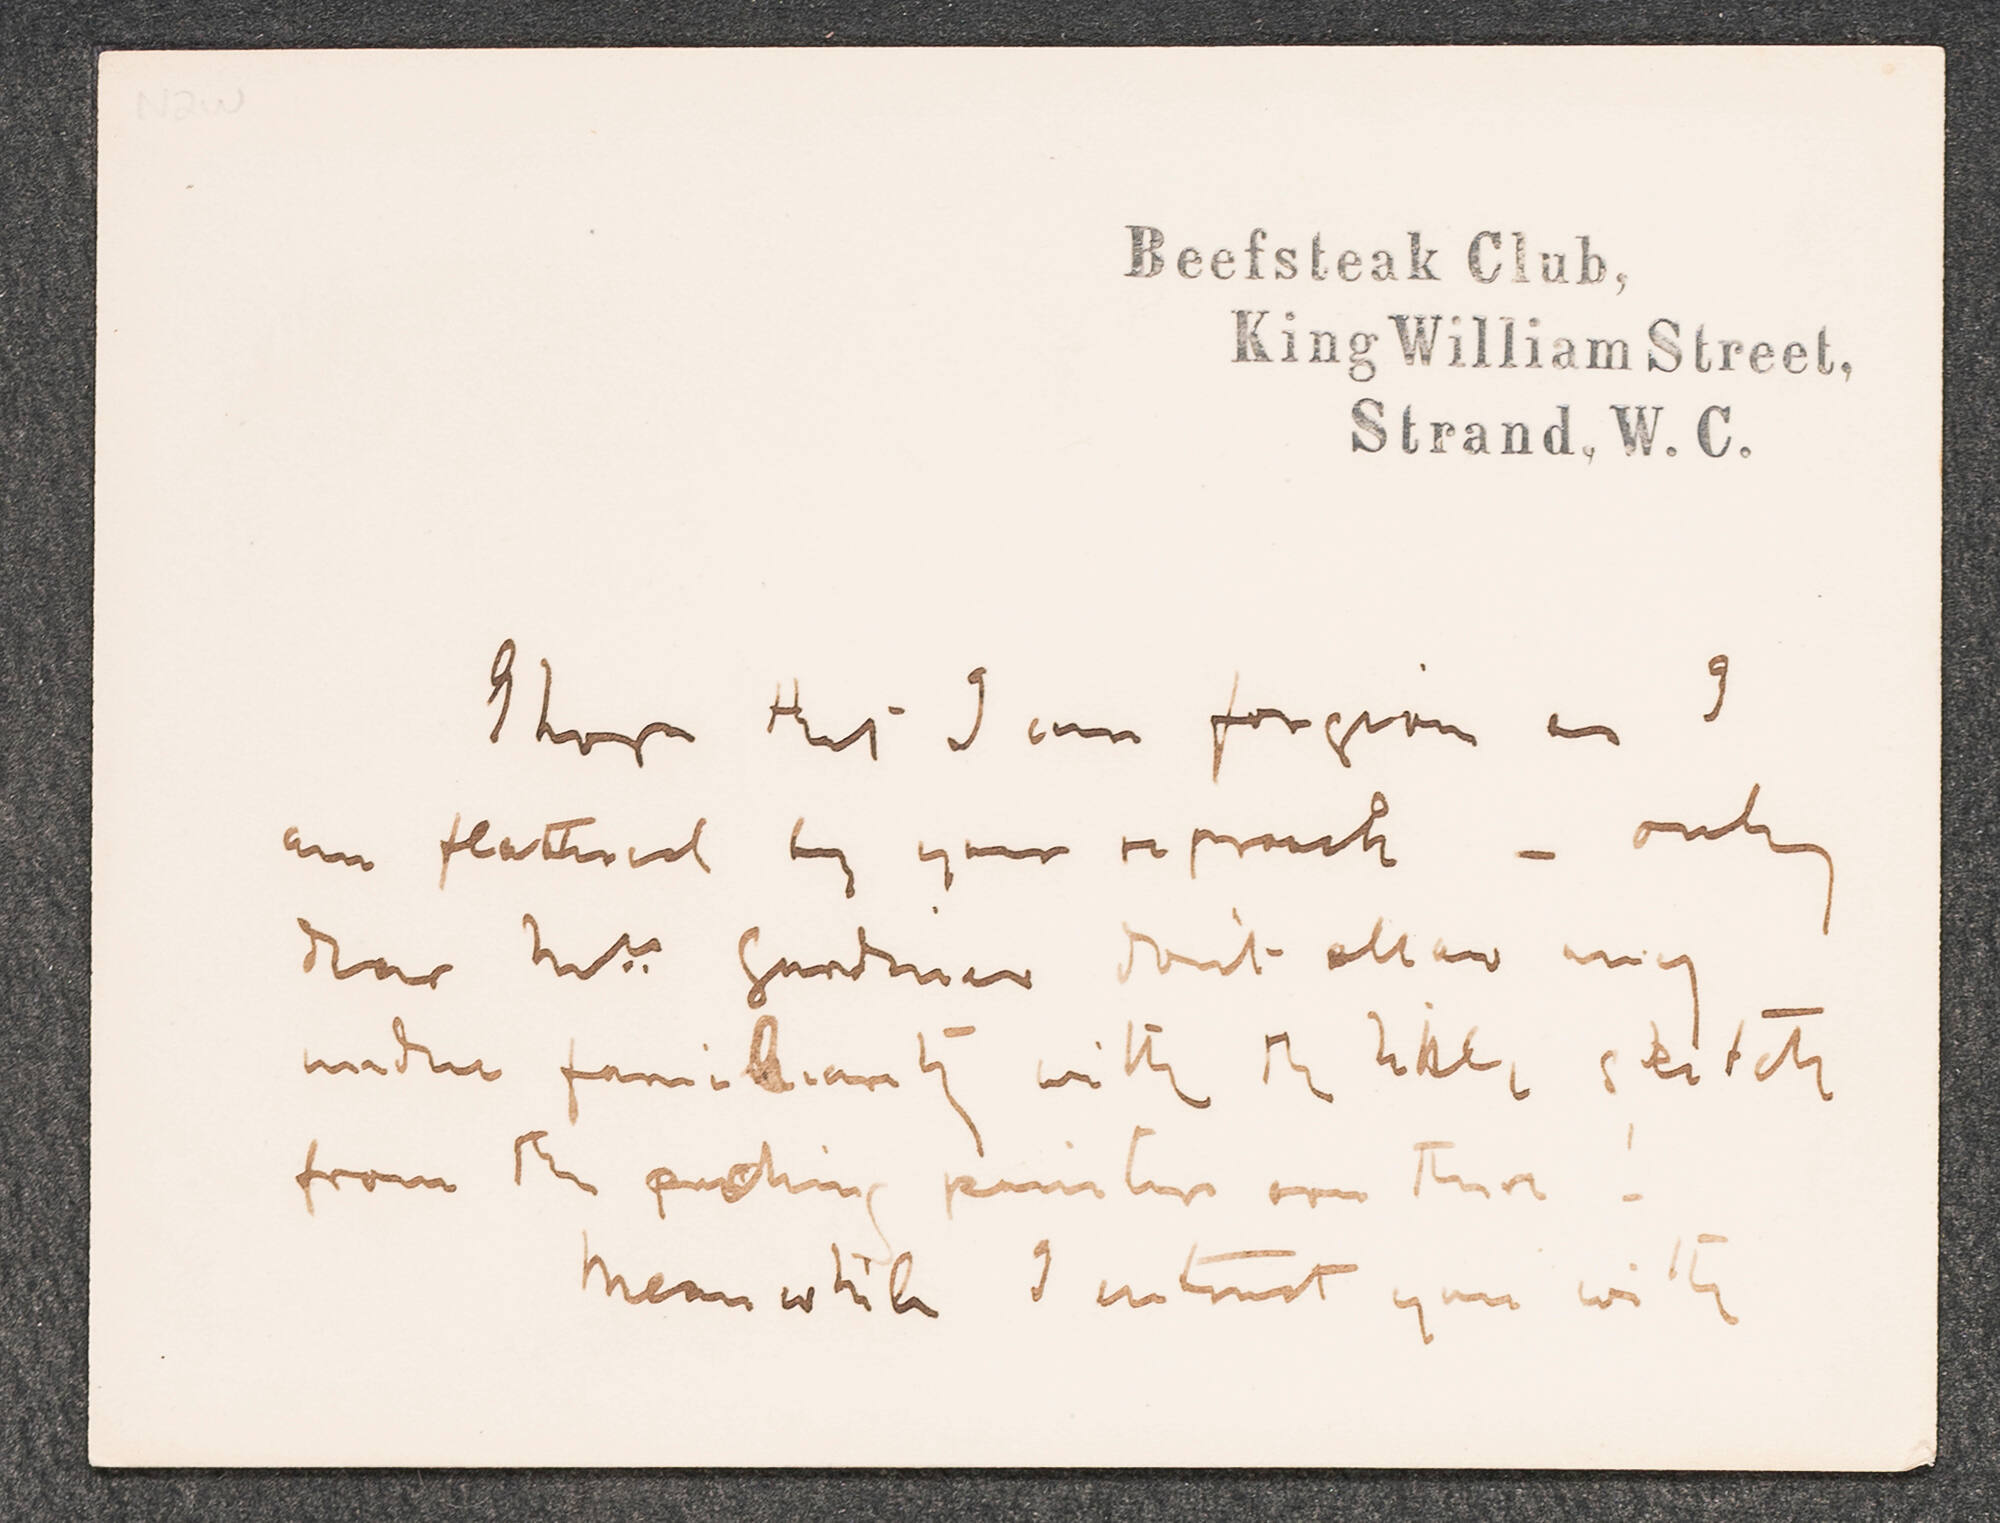 Beefsteak Club,
King William Street,
Strand, W. C.
I hope that I am forgiven as I
am flattered by your reproach — only
dear Mrs. Gardiner don't allow any
undue familiarity with the little sketch
from the pushing painter over there!
Meanwhile I entrust you with